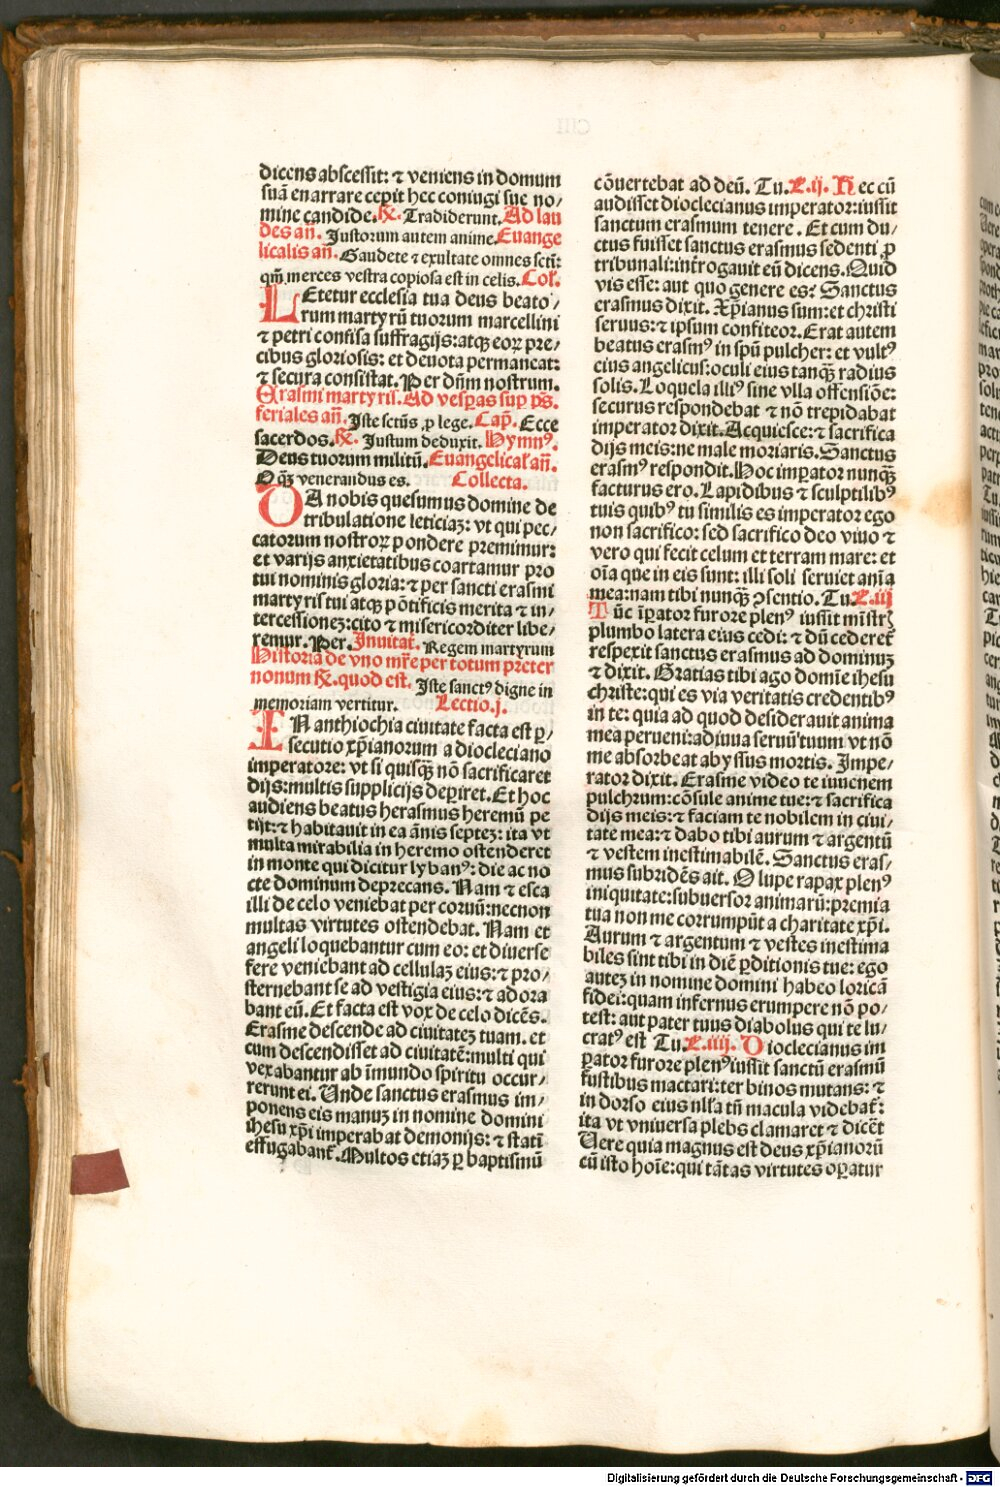 dicens abscessit: ⁊ veniens in domum
suā enarrare cepit hec coniugi sue no/
mine candide. R̃. Tradiderunt. Ad lau
des añ. Justorum autem anime. Euange
licalis añ. Gaudete ⁊ exultate omnes scti:
qm̃ merces vestra copiosa est in celis. Col̃.
LEtetur ecclesia tua deus beato/
rum martyrū tuorum marcellini
⁊ petri confisa suffragijs: atqꝫ eoꝝ pre/
cibus gloriosis: et deuota permaneat:
⁊ secura consistat. Per dñm nostrum.
Erasmi martyris. Ad vesꝑas suꝑ ps̃.
feriales añ. Iste sctũs ꝓ lege. Cap̃. Ecce
sacerdos. R̃. Justum deduxit. Hymnꝰ.
Deus tuorum militū. Euangelical̃ añ.
O qꝫ̃ venerandus es. Collecta.
DA nobis quesumus domine de
tribulatione leticiaꝫ: vt qui pec/
catorum nostroꝝ pondere premimur:
et varijs anxietatibus coartamur pro
tui nominis gloria: ⁊ per sancti erasmi
martyris tui atqꝫ põtificis merita ⁊ in/
tercessioneꝫ: cito ⁊ misericorditer libe/
remur. Per. Inuitat̃. Regem martyrum
Historia de vno mr̃e per totum preter
nonum R̃. quod est. Iste sanctꝰ digne in
memoriam vertitur. Lectio.j.
IN anthiochia ciuitate facta est ꝑ/
secutio xp̃ianorum a diocleciano
imperatore: vt si quisqꝫ̃ nō sacrificaret
dijs: multis supplicijs deꝑiret. Et hoc
audiens beatus herasmus heremū pe
tijt: ⁊ habitauit in ea ānis septeꝫ: ita vt
multa mirabilia in heremo ostenderet
in monte qui dicitur lybanꝰ: die ac no
cte dominum deprecans. Nam ⁊ esca
illi de celo veniebat per coruū: necnon
multas virtutes ostendebat. Nam et
angeli loquebantur cum eo: et diuerse
fere veniebant ad cellulaꝫ eius: ⁊ pro/
sternebant se ad vestigia eius: ⁊ adora
bant eū. Et facta est vox de celo dicēs.
Erasme descende ad ciuitateꝫ tuam. et
cum descendisset ad ciuitatē: multi qui
vexabantur ab īmundo spiritu occur/
rerunt ei. Unde sanctus erasmus im/
ponens eis manuꝫ in nomine domini
ihesu xp̃i imperabat demonijs: ⁊ statī
effugabant̃. Multos etiaꝫ ꝑ baptismū
cōuertebat ad deū. Tu. L.ij. Hec cū
audisset dioclecianus imperator: iussit
sanctum erasmum tenere. Et cum du/
ctus fuisset sanctus erasmus sedenti ꝓ
tribunali: introgauit eū dicens. Quid
vis esse: aut quo genere es? Sanctus
erasmus dixit. Xp̃ianus sum: et christi
seruus: ⁊ ipsum confiteor. Erat autem
beatus erasmꝰ in spū pulcher: et vultꝰ
eius angelicus: oculi eius tanqꝫ̃ radius
solis. Loquela illiꝰ sine vlla offensiōe:
securus respondebat ⁊ nō trepidabat
imperator dixit. Acquiesce: ⁊ sacrifica
dijs meis: ne male moriaris. Sanctus
erasmꝰ respondit. Hoc imꝑator nunqꝫ̃
facturus ero. Lapidibus ⁊ sculptilibꝰ
tuis quibꝰ tu similis es imperator ego
non sacrifico: sed sacrifico deo viuo ⁊
vero qui fecit celum et terram mare: et
oīa que in eis sunt: illi soli seruiet anīa
mea: nam tibi nunqꝫ̃ ꝯsentio. Tu. L.iij
Tūc īꝑator furore plenꝰ iussit mīstrꝭ
plumbo latera eius cedi: ⁊ dū cederet̃
respexit sanctus erasmus ad dominuꝫ
⁊ dixit. Gratias tibi ago domīe ihesu
christe: qui es via veritatis credentibꝰ
in te: quia ad quod desiderauit anima
mea perueni: adiuua seruū tuum vt nō
me absorbeat abyssus mortis. Impe/
rator dixit. Erasme video te iuuenem
pulchrum: cōsule anime tue: ⁊ sacrifica
dijs meis: ⁊ faciam te nobilem in ciui/
tate mea: ⁊ dabo tibi aurum ⁊ argentū
⁊ vestem inestimabilē. Sanctus eras/
mus subridēs ait. O lupe rapax plenꝰ
iniquitate: subuersor animarū: premia
tua non me corrumpūt a charitate xp̃i.
Aurum ⁊ argentum ⁊ vestes inestima
biles sint tibi in diē ꝑditionis tue: ego
auteꝫ in nomine domini habeo loricā
fidei: quam infernus erumpere nō po/
test: aut pater tuus diabolus qui te lu/
cratꝰ est Tu. L.iiij. Dioclecianus im
ꝑator furore plenꝰ iussit sanctū erasmū
fustibus mactari: ter binos mutans: ⁊
in dorso eius nl̃la tñ macula videbat̃:
ita vt vniuersa plebs clamaret ⁊ dicēt
Uere quia magnus est deus xp̃ianorū
cū isto hoīe: qui tātas virtutes oꝑatur
Digitalisierung gefördert durch die Deutsche Forschungsgemeinschaft - DFG